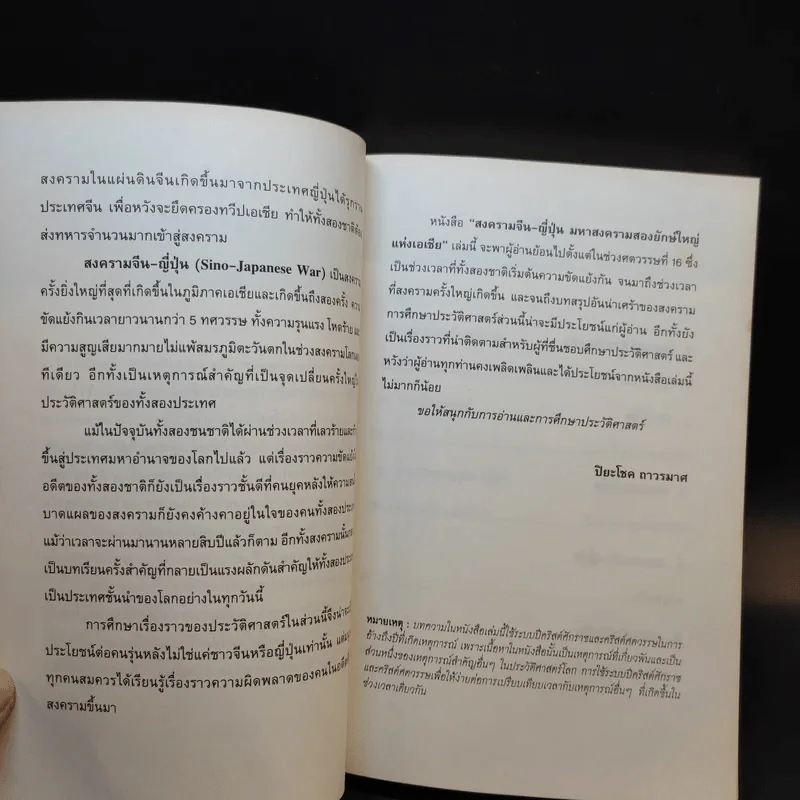 สงครามในแผ่นดินจีนเกิดขึ้นมาจากประเทศญี่ปุ่นได้รุกราน
ประเทศจีน เพื่อหวังจะยึดครองทวีปเอเชีย ทำให้ทั้งสองชาติต้อง
ส่งทหารจำนวนมากเข้าสู่สงคราม
สงครามจีน-ญี่ปุ่น (Sino-Japanese War) เป็นสงคราม
ครั้งยิ่งใหญ่ที่สุดที่เกิดขึ้นในภูมิภาคเอเชียและเกิดขึ้นถึงสองครั้ง ความ
ขัดแย้งกินเวลายาวนานกว่า 5 ทศวรรษ ทั้งความรุนแรง โหดร้าย และ
มีความสูญเสียมากมายไม่แพ้สมรภูมิตะวันตกในช่วงสงครามโลก
ทีเดียว อีกทั้งเป็นเหตุการณ์สำคัญที่เป็นจุดเปลี่ยนครั้งใหญ่ใน
ประวัติศาสตร์ของทั้งสองประเทศ
แม้ในปัจจุบันทั้งสองชนชาติได้ผ่านช่วงเวลาที่เลวร้ายและก้าว
ขึ้นสู่ประเทศมหาอำนาจของโลกไปแล้ว แต่เรื่องราวความขัดแย้งใน
อดีตของทั้งสองชาติก็ยังเป็นเรื่องราวชั้นดีที่คนยุคหลังให้ความสนใจ
บาดแผลของสงครามก็ยังคงค้างคาอยู่ในใจของคนทั้งสองประเทศ
แม้ว่าเวลาจะผ่านมานานหลายสิบปีแล้วก็ตาม อีกทั้งสงครามนั้น
เป็นบทเรียนครั้งสำคัญที่กลายเป็นแรงผลักดันสำคัญให้ทั้งสองประเทศ
เป็นประเทศชั้นนำของโลกอย่างในทุกวันนี้
การศึกษาเรื่องราวของประวัติศาสตร์ในส่วนนี้จึงน่าจะ
ประโยชน์ต่อคนรุ่นหลังไม่ใช่แค่ชาวจีนหรือญี่ปุ่นเท่านั้น แต่
ทุกคนสมควรได้เรียนรู้เรื่องราวความผิดพลาดของคนในอดีต
สงครามขึ้นมา
หนังสือ "สงครามจีน-ญี่ปุ่น มหาสงครามสองยักษ์ใหญ่
แห่งเอเชีย" เล่มนี้ จะพาผู้อ่านย้อนไปตั้งแต่ในช่วงศตวรรษที่ 16 ซึ่ง
เป็นช่วงเวลาที่ทั้งสองชาติเริ่มต้นความขัดแย้งกัน จนมาถึงช่วงเวลา
ที่สงครามครั้งใหญ่เกิดขึ้น และจนถึงบทสรุปอันน่าเศร้าของสงคราม
การศึกษาประวัติศาสตร์ส่วนนี้น่าจะมีประโยชน์แก่ผู้อ่าน อีกทั้งยัง
เป็นเรื่องราวที่น่าติดตามสำหรับผู้ที่ชื่นชอบศึกษาประวัติศาสตร์ และ
หวังว่าผู้อ่านทุกท่านคงเพลิดเพลินและได้ประโยชน์จากหนังสือเล่มนี้
ไม่มากก็น้อย
ขอให้สนุกกับการอ่านและการศึกษาประวัติศาสตร์
ปิยะโชค ถาวรมาศ
หมายเหตุ : บทความในหนังสือเล่มนี้ใช้ระบบปีคริสต์ศักราชและคริสต์ศตวรรษในการ
อ้างถึงปีที่เกิดเหตุการณ์ เพราะเนื้อหาในหนังสือนั้นเป็นเหตุการณ์ที่เกี่ยวพันและเป็น
ส่วนหนึ่งของเหตุการณ์สำคัญอื่นๆ ในประวัติศาสตร์โลก การใช้ระบบปีคริสต์ศักราช
และคริสต์ศตวรรษเพื่อให้ง่ายต่อการเปรียบเทียบเวลากับเหตุการณ์อื่นๆ ที่เกิดขึ้นใน
ช่วงเวลาเดียวกัน